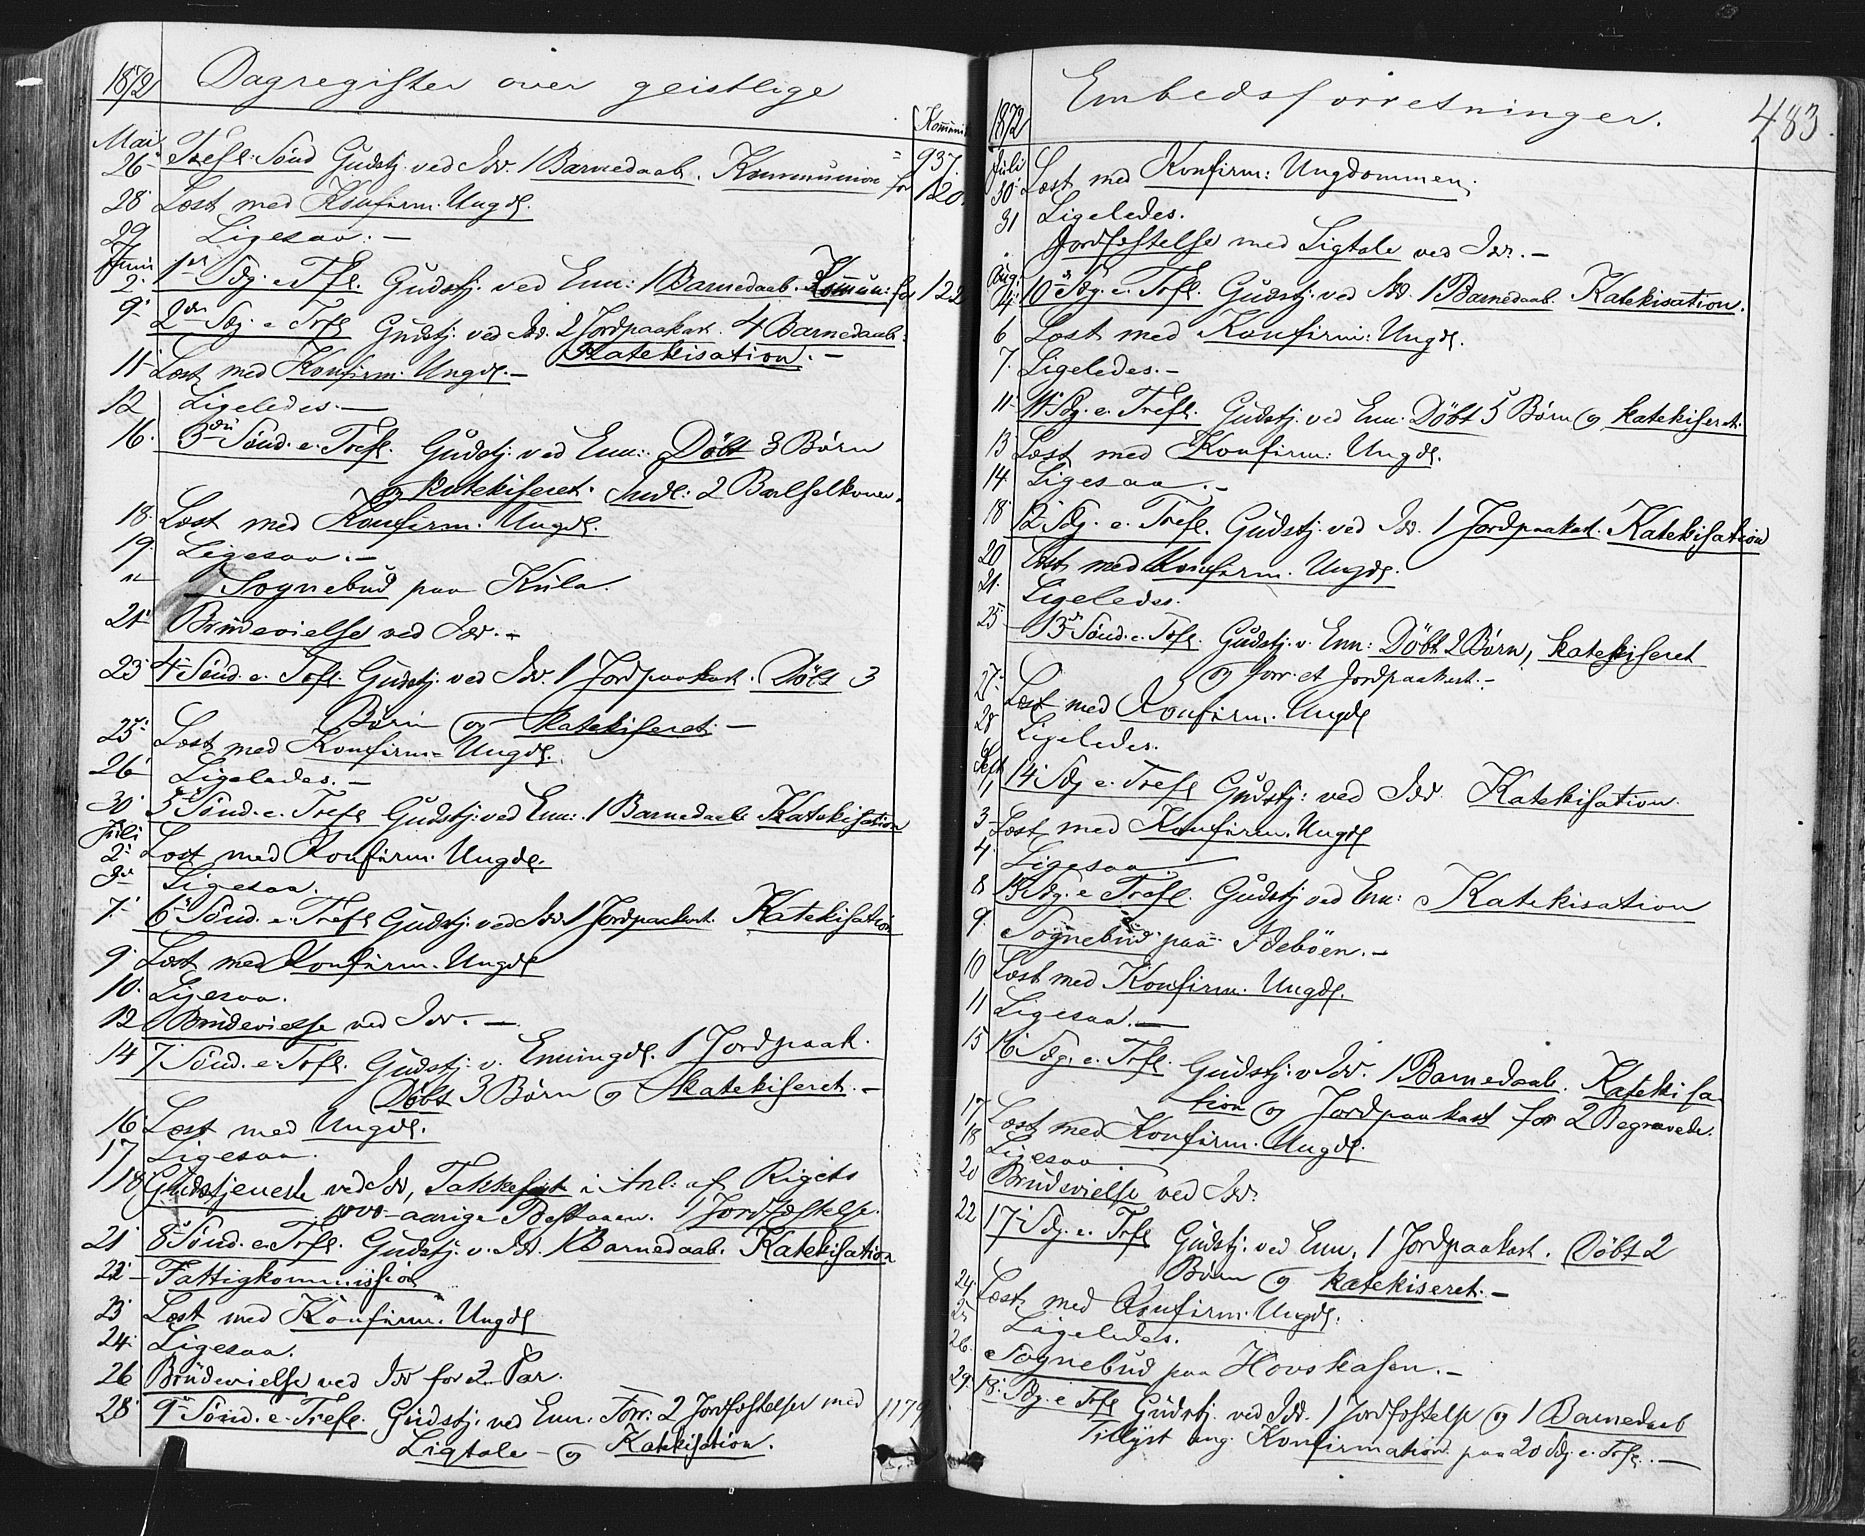 1872 Dagregister over geistlige
Kommunik.
Mai
26 Trefl. Sönd Gudstj. ved Idd. 1 Barnedaab. Kommunion = 937.
for 120.
28 Læst med Konfirm. Ungd.
29 Ligesaa. —
Juni
2. 1st Sdg. e. Trfl. Gudstj. ved Enn: 1 Barnedaab. Kommun: for 122
9. 2den Sdg. e. Trfl Gudstj. ved Idd. 2 Jordpaakast. 4 Barnedaab.
Katekisation. —
11 Læst med Konfirm. Ungd. —
12 Ligeledes. —
16. 3die Sönd. e. Trefl. Gudstj. ved Enn: Döbt 3 Börn
og katekiseret. Indl: 2 Barselkoner.
18. Læst med Konfirm. Ungd.
19. Ligesaa. —
" Sognebud paa Kula.
21. Brudevielse ved Idd. —
23 4de Sönd. e. Trfl. Gudstj. ved Idd. 1 Jordpaakast. Döbt 3
Börn og katekiseret. —
25. Læst med Konfirm. Ungd.
26 Ligeledes. —
30. 5 Sönd. e. Trefl Gudstj. ved Enn: 1 Barnedaab Katekisation
Juli
2. Læst med Konfirm. Ungd.
3. Ligesaa.
7. 6 Sönd. e. Trefl Gudstj. ved Idd 1 Jordpaakast. Katekisation
9. Læst med Konfirm. Ungd
10. Ligesaa.
12 Brudevielse ved Idd. —
14 7 Sönd. e. Trfl. Gudstj. v. Enningdl. 1 Jordpaak.
Döbt 3 Börn og katekiseret. —
16 Læst med Ungd.
17 Ligesaa.
18 Gudstjeneste ved Idd, Takkefest i Anl: af Rigets
1000-aarige Bestaaen. 1 Jordfæstelse.
21 8 Sönd. e. Trfl. Gudstj. v. Idd. 1 Barnedaab. Katekisation
22 — Fattigkommission
23 Læst med Konfirm. Ungd
24. Ligesaa.
26 Brudevielse ved Idd for 2 Par.
28 9 Sönd. e. Trefl. Gudstj. ved Enn: Forr: 2 Jordfæstelser med 1179
Ligtale — og Katekisation.
1872 Embedsforretninger. 483.
Juli
30 Læst med Konfirm: Ungdommen.
31 Ligeledes.
" Jordfæstelse med Ligtale ved Idd. —
Aug.
4. 10 Sdg. e. Trfl. Gudstj. ved Idd. 1 Barnedaab. Katekisation.
6 Læst med Konfirm: Ungd.
7. Ligeledes. —
11. 11 Sdg. e. Trefl. Gudstj. ved Enn: Döbt 5 Börn og katekiseret.
13 Læst med Konfirm: Ungd.
14 Ligesaa. —
18 12 Sdg. e. Trefl. Gudstj. ved Idd. 1 Jordpaakast. Katekisation
20 Læst med Konfirm. Ungd.
21. Ligeledes.
25 13 Sönd. e. Trfl. Gudstj. v. Enn: Döbt 2 Börn, katekiseret
og forr. et Jordpaakast. —
27. Læst med Konfirm. Ungd
28 Ligeledes.
Sept
1. 14 Sdg e. Trefl Gudstj: ved Idd Katekisation.
3 Læst med Konfirm. Ungd
4. Ligesaa.
8 15 Sdg. e Trefl. Gudstj ved Enn: Katekisation
9. Sognebud paa Ideböen. —
10 Læst med Konfirm. Ungd.
11 Ligesaa. —
15 16 Sdg. e. Trfl. Gudstj. v. Idd. 1 Barnedaab. Katekisa-
tion og Jordpaakast for 2 Begravede.
17. Læst med Konfirm. Ungd.
18 Ligesaa.
20 Brudevielse ved Idd.
22 17 Sdg. e. Trfl Gudstj. ved Enn. 1 Jordpaakast. Döbt 2
Börn og katekiseret. —
24. Læst med Konfirm. Ungd.
25 Ligeledes.
26. Sognebud paa Hovskasen. —
29. 18. Sdg. e Trfl Gudstj. ved Idd. 1 Jordfæstelse og 1 Barnedaab
Tillyst ang. Konfirmation paa 20 Sdg. e. Trfl. —